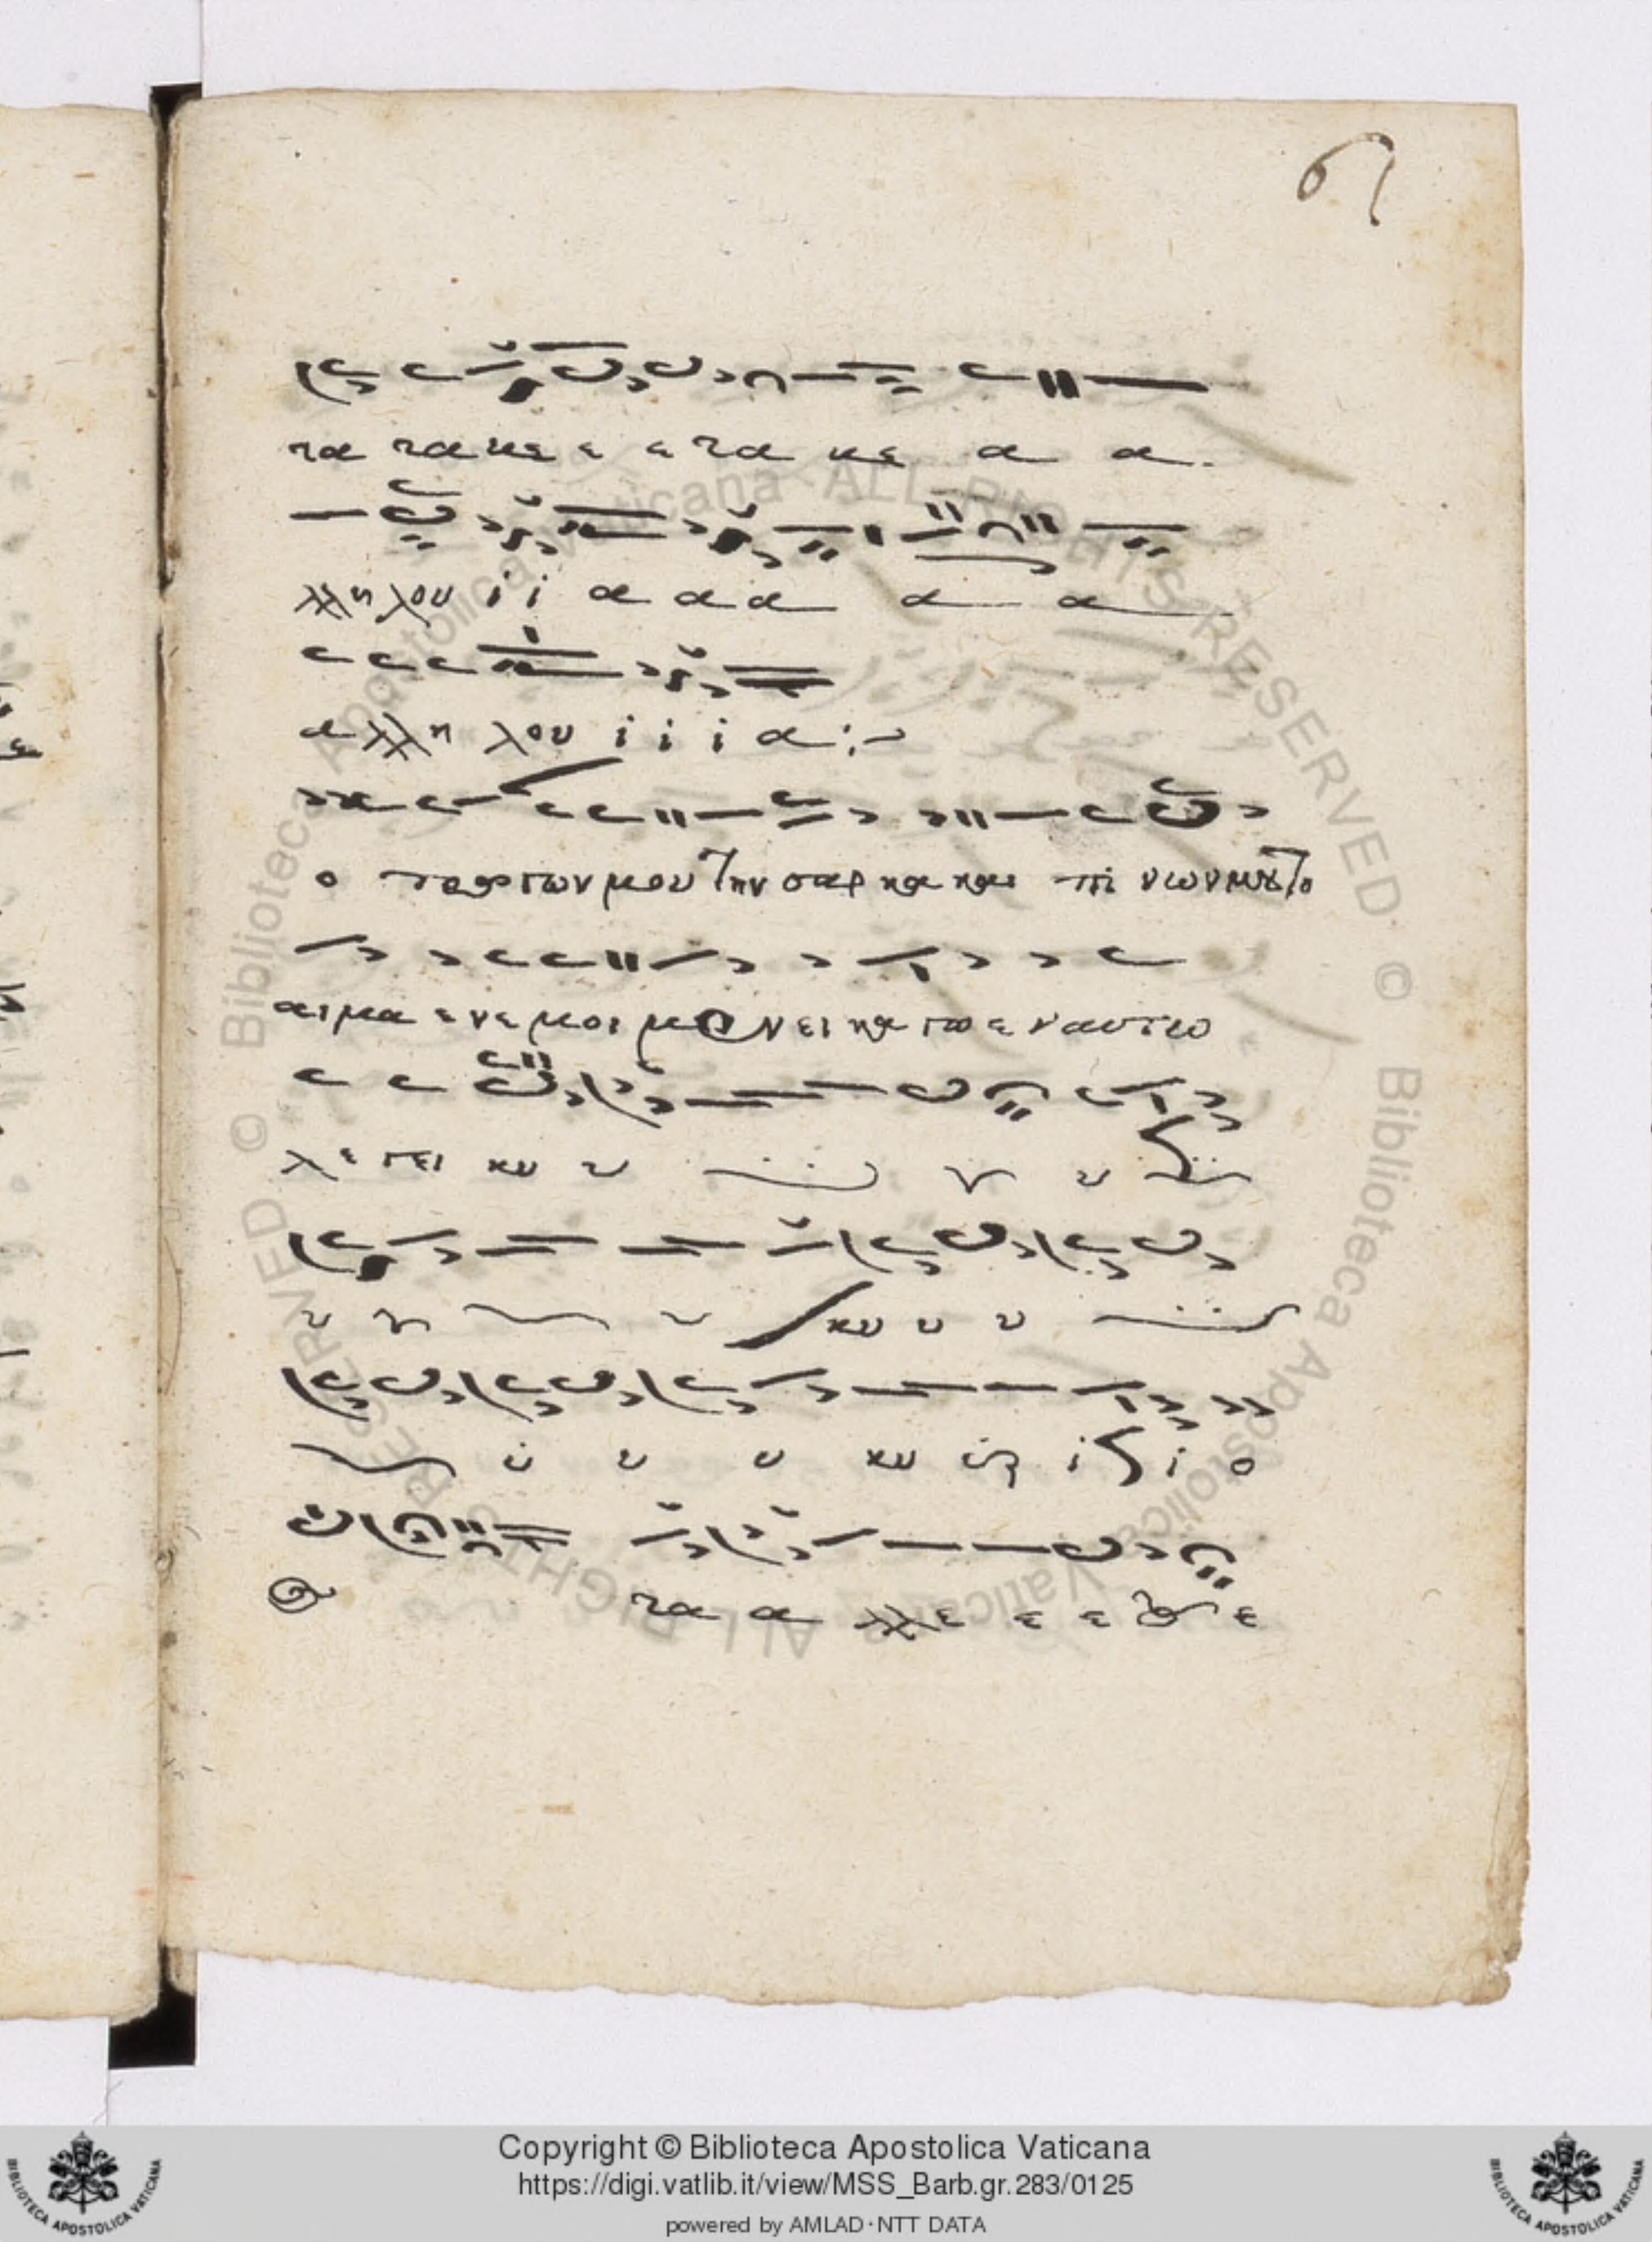 61
τα τα κε ε ε τα κε α α.
λληλου ι ι α α α α α
αλλη λου ι ι ι α:~
ο τρωγων μου την σαρκα και πινων μου το
αιμα εν εμοι μενει καγω εν αυτω
λεγει κυ υ υ υ
υ υ υ κυ υ υ
υ υ υ κυ ι ι ο
τα α λλε ε ε ε
Copyright © Biblioteca Apostolica Vaticana
https://digi.vatlib.it/view/MSS_Barb.gr.283/0125
powered by AMLAD·NTT DATA
BIBLIOTECA APOSTOLICA VATICANA
BIBLIOTECA APOSTOLICA VATICANA
© Biblioteca Apostolica Vaticana ALL RIGHTS RESERVED © Biblioteca Apostolica Vaticana ALL RIGHTS RESERVED